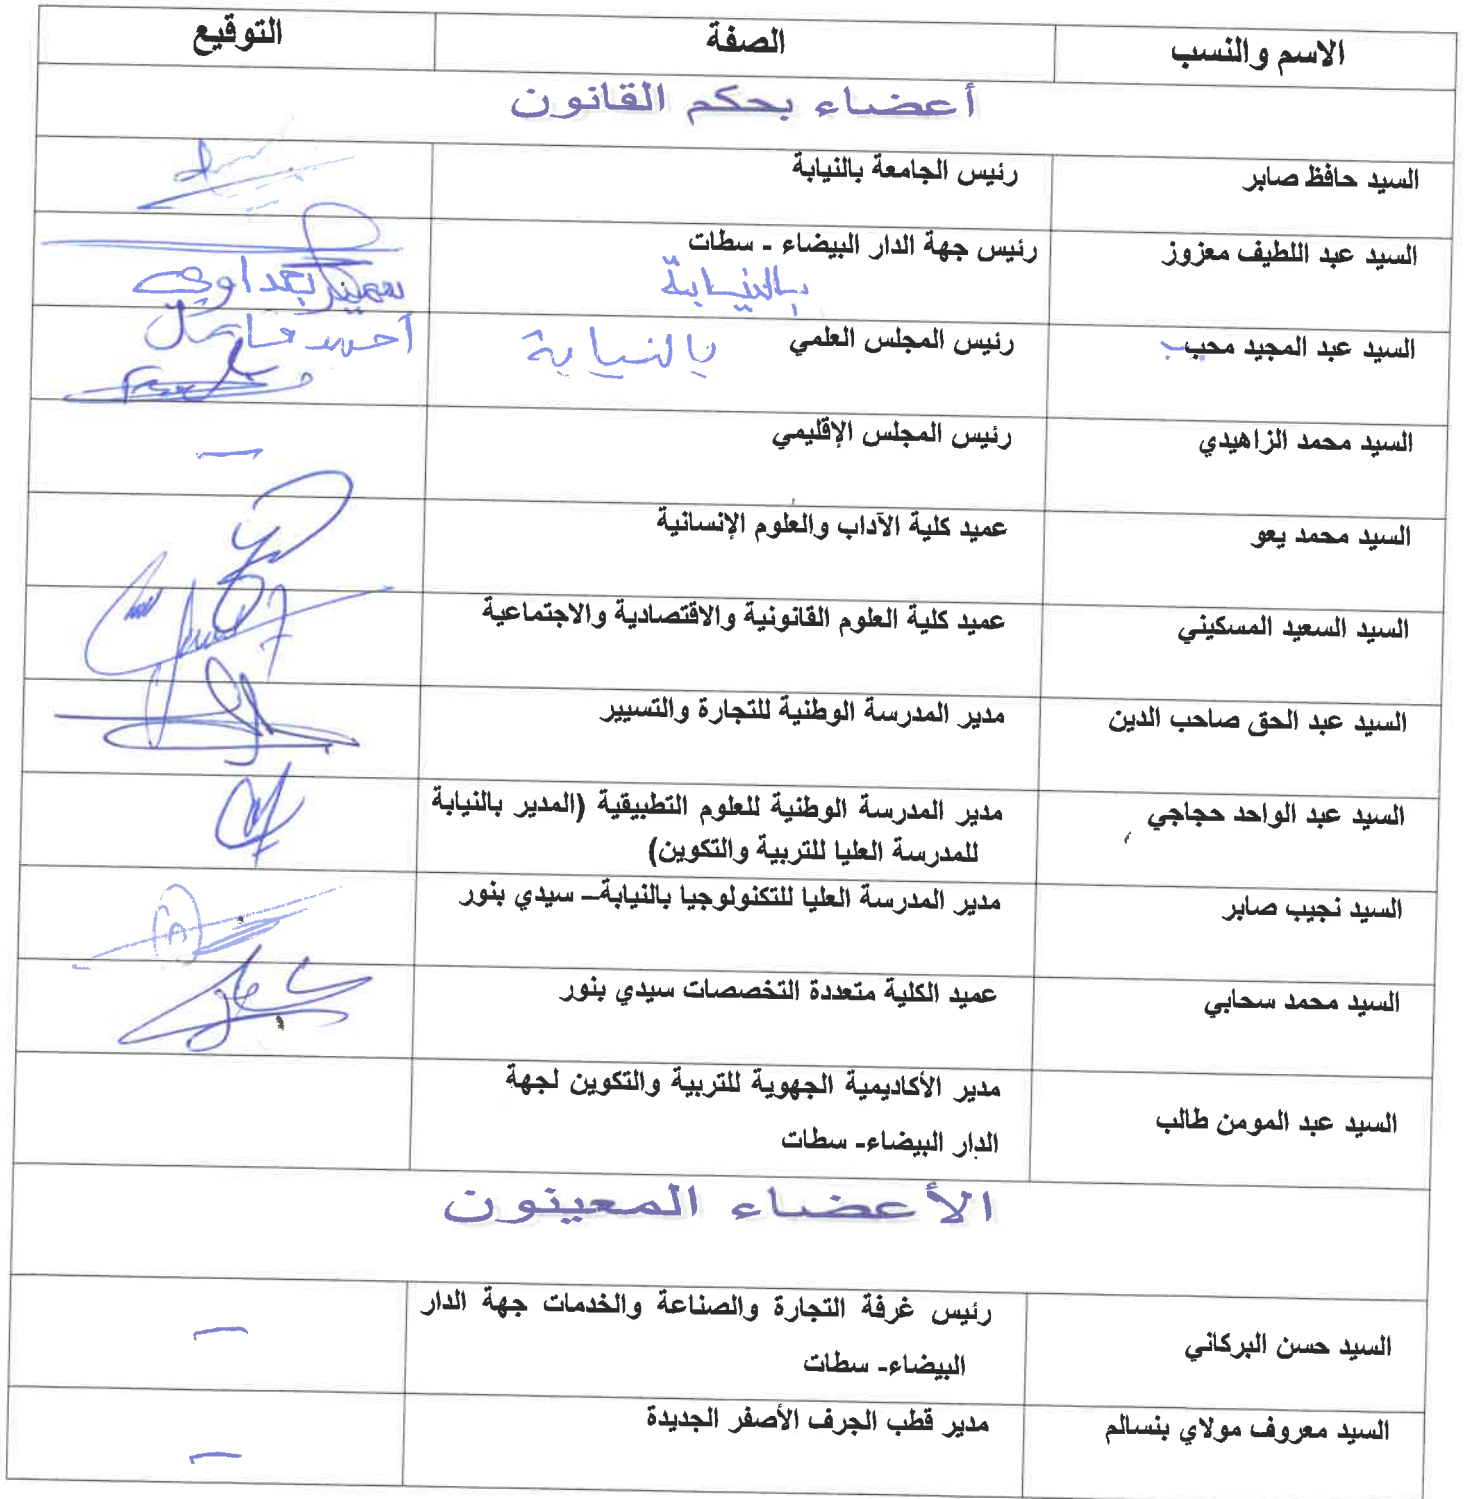 الاسم والنسب الصفة التوقيع
أعضاء بحكم القانون
السيد حافظ صابر رئيس الجامعة بالنيابة
السيد عبد اللطيف معزوز رئيس جهة الدار البيضاء - سطات
بالنيابة
السيد عبد المجيد محب رئيس المجلس العلمي بالنيابة
السيد محمد الزاهيدي رئيس المجلس الإقليمي
السيد محمد يعو عميد كلية الآداب والعلوم الإنسانية
السيد السعيد المسكيني عميد كلية العلوم القانونية والاقتصادية والاجتماعية
السيد عبد الحق صاحب الدين مدير المدرسة الوطنية للتجارة والتسيير
السيد عبد الواحد حجاجي مدير المدرسة الوطنية للعلوم التطبيقية (المدير بالنيابة
للمدرسة العليا للتربية والتكوين)
السيد نجيب صابر مدير المدرسة العليا للتكنولوجيا بالنيابة– سيدي بنور
السيد محمد سحابي عميد الكلية متعددة التخصصات سيدي بنور
السيد عبد المومن طالب مدير الأكاديمية الجهوية للتربية والتكوين لجهة
الدار البيضاء- سطات
الأعضاء المعينون
السيد حسن البركاني رئيس غرفة التجارة والصناعة والخدمات جهة الدار
البيضاء- سطات
السيد معروف مولاي بنسالم مدير قطب الجرف الأصفر الجديدة